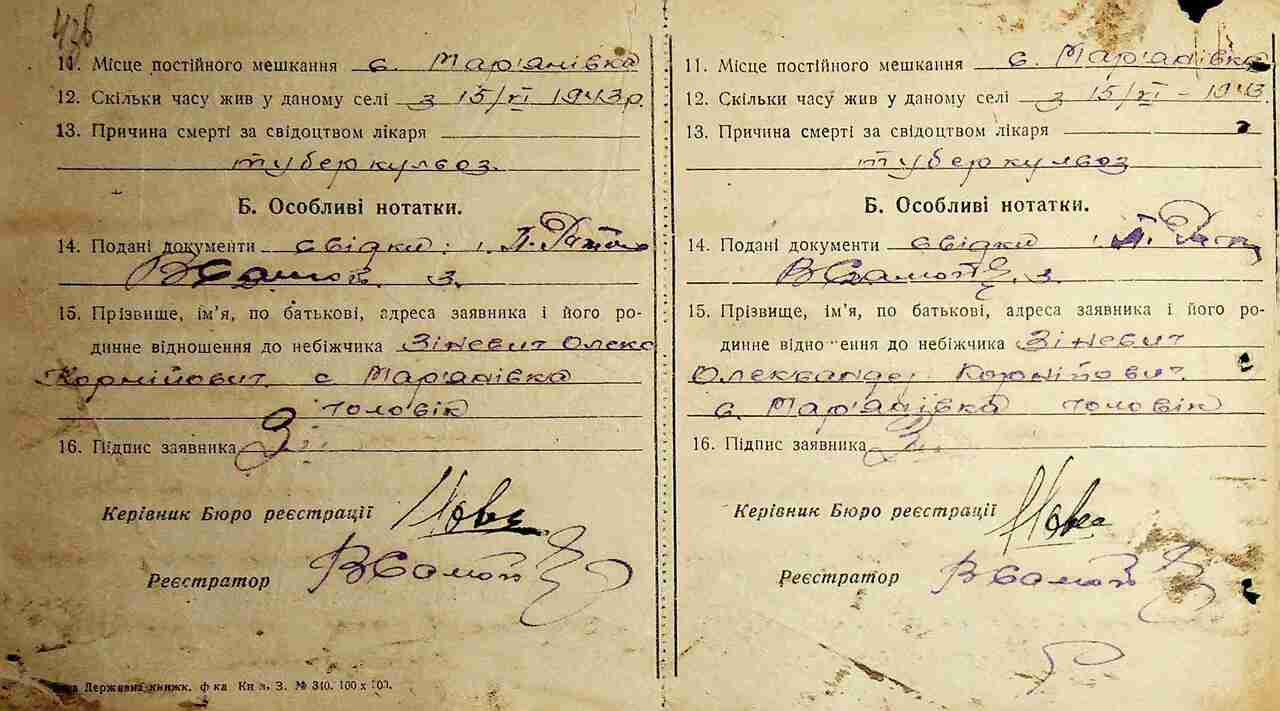 438
11. Місце постійного мешкання с. Мар'янівка
12. Скільки часу жив у даному селі з 15/VI 1943 р.
13. Причина смерті за свідоцтвом лікаря
туберкульоз.
Б. Особливі нотатки.
14. Подані документи свідки: 1.
2.
15. Прізвище, ім'я, по батькові, адреса заявника і його ро-
динне відношення до небіжчика Зіневич Олекс
Корнійович с Мар'янівка
чоловік
16. Підпис заявника
Керівник Бюро реєстрації
Реєстратор
Державна книжк. ф-ка Зам. З. № 340. 100 х 100.
11. Місце постійного мешкання с. Мар'янівка
12. Скільки часу жив у даному селі з 15/VI - 1943.
13. Причина смерті за свідоцтвом лікаря
туберкульоз
Б. Особливі нотатки.
14. Подані документи свідки 1
2.
15. Прізвище, ім'я, по батькові, адреса заявника і його ро-
динне відношення до небіжчика Зіневич
Олександр Корнійович.
с. Мар'янівка чоловік
16. Підпис заявника
Керівник Бюро реєстрації
Реєстратор